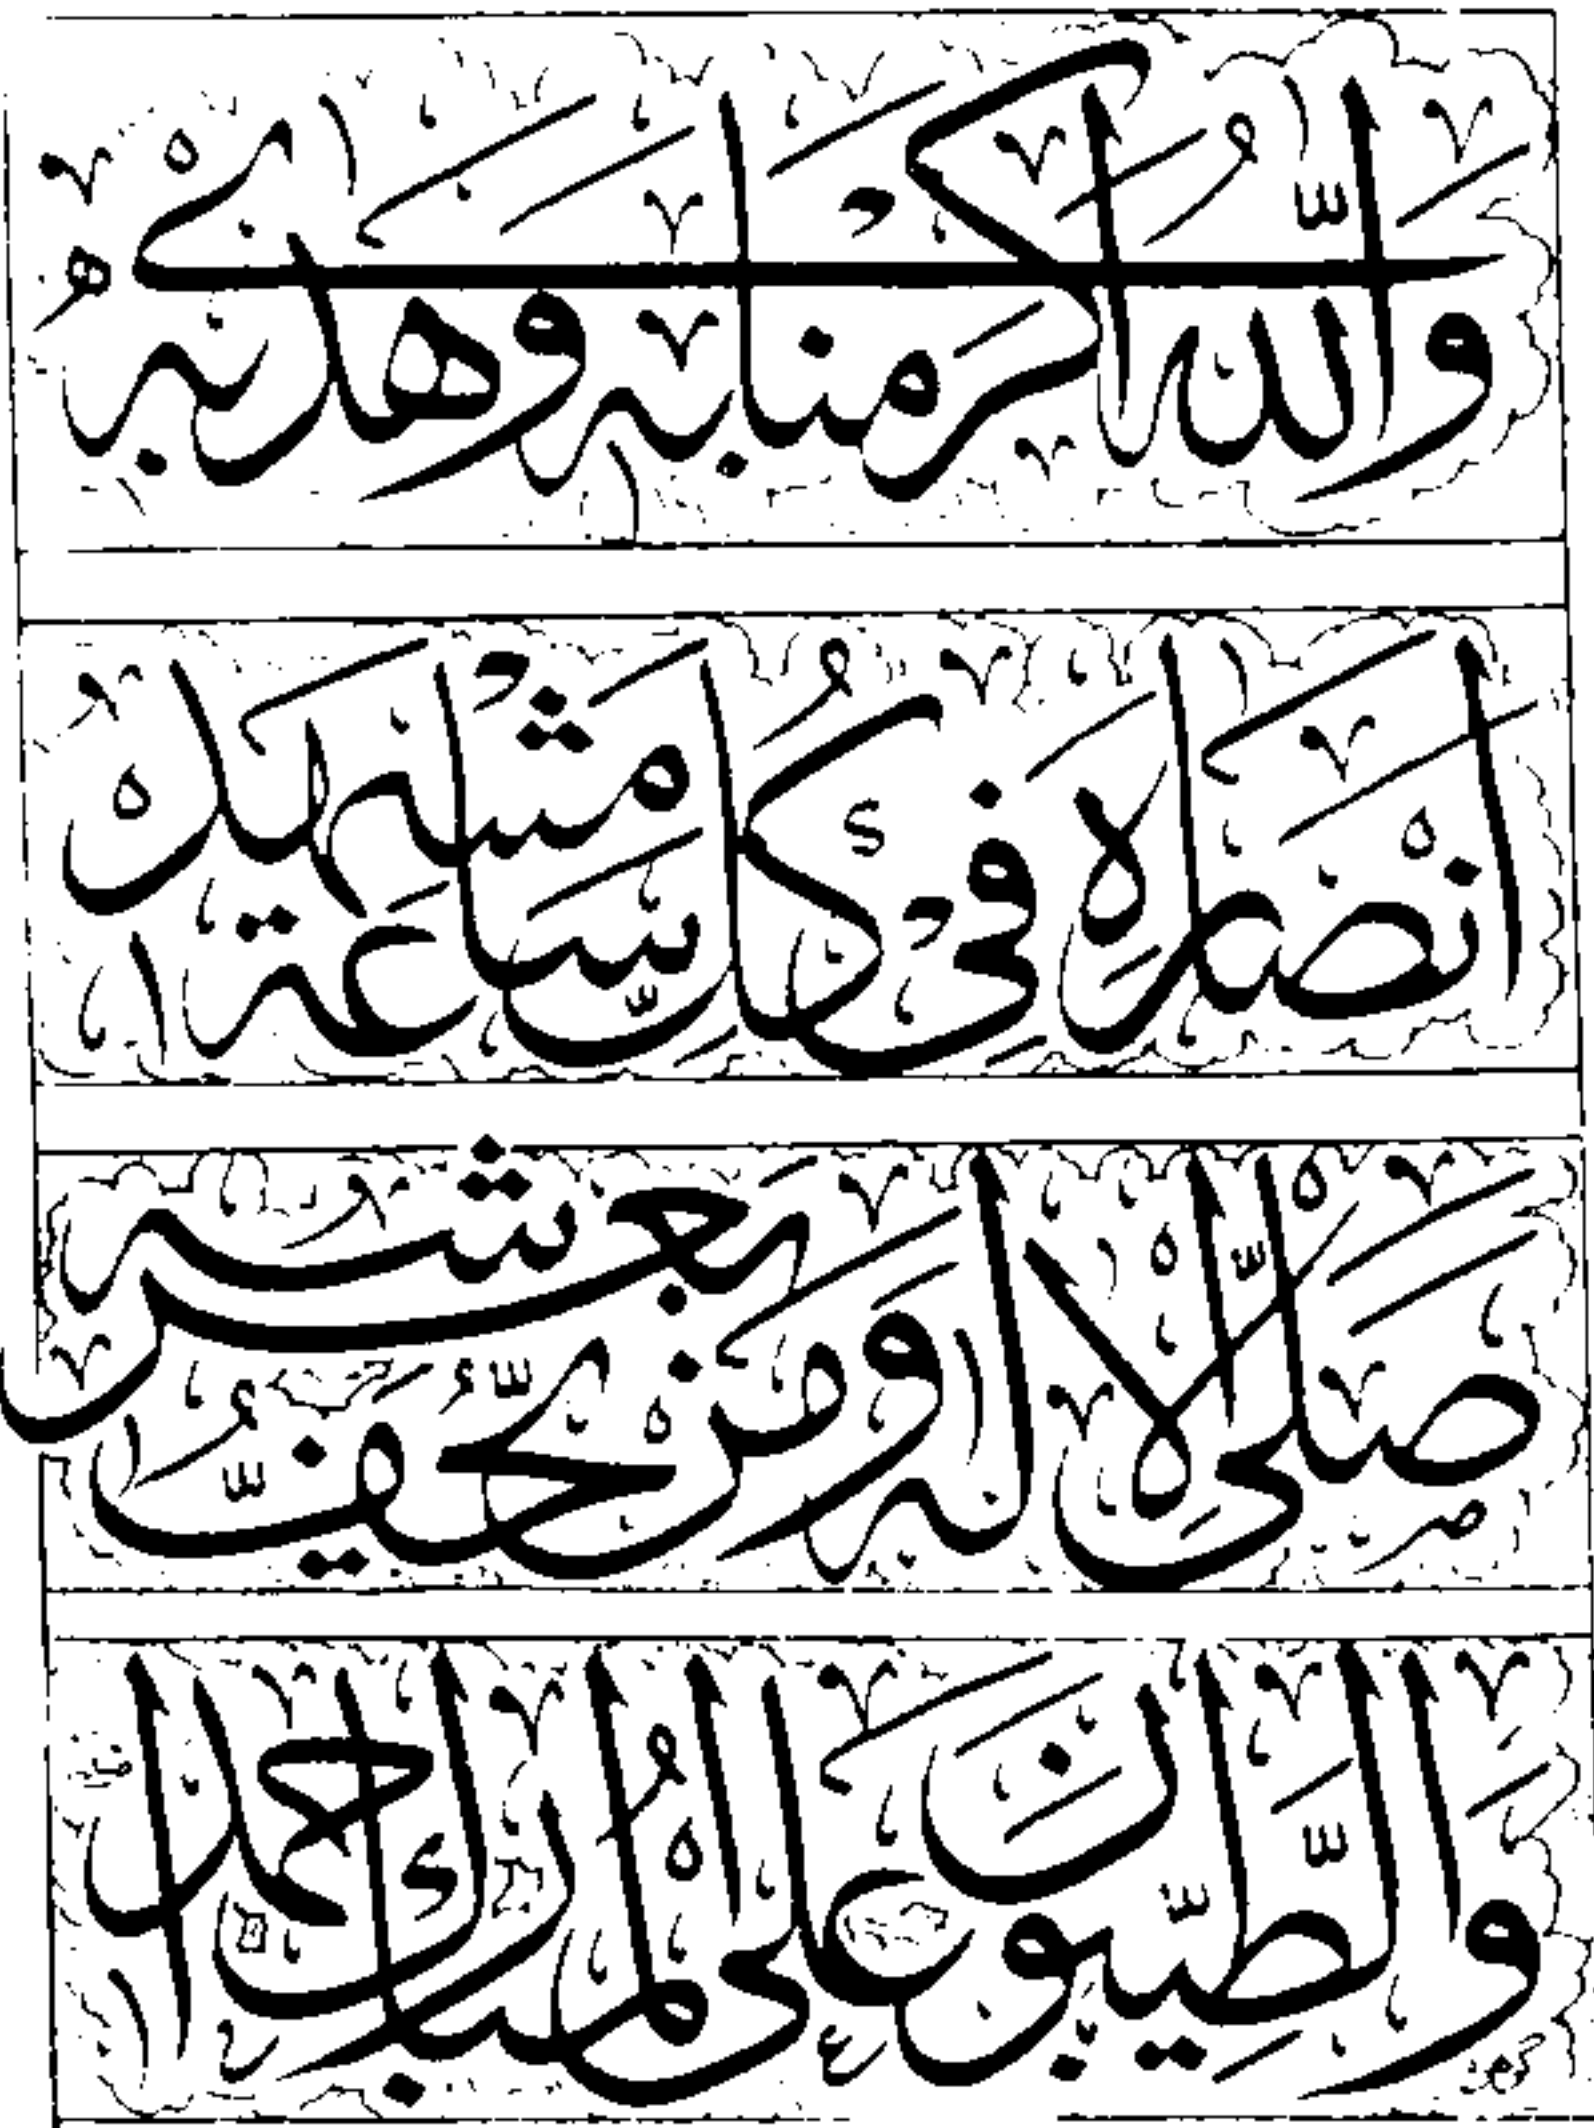 وَاللَّهُ اَكْرَمَنَا بِهِ وَهَدَى بِهِ
اَنْصَارَهُ فِي كُلِّ سَاعَةِ مَشْهَدٍ
صَلَّى الْاِلَهُ وَمَنْ يَحُفُّ بِعَرْشِهِ
وَالطَّيِّبُونَ عَلَى الْمُبَارَكِ اَحْمَدَا